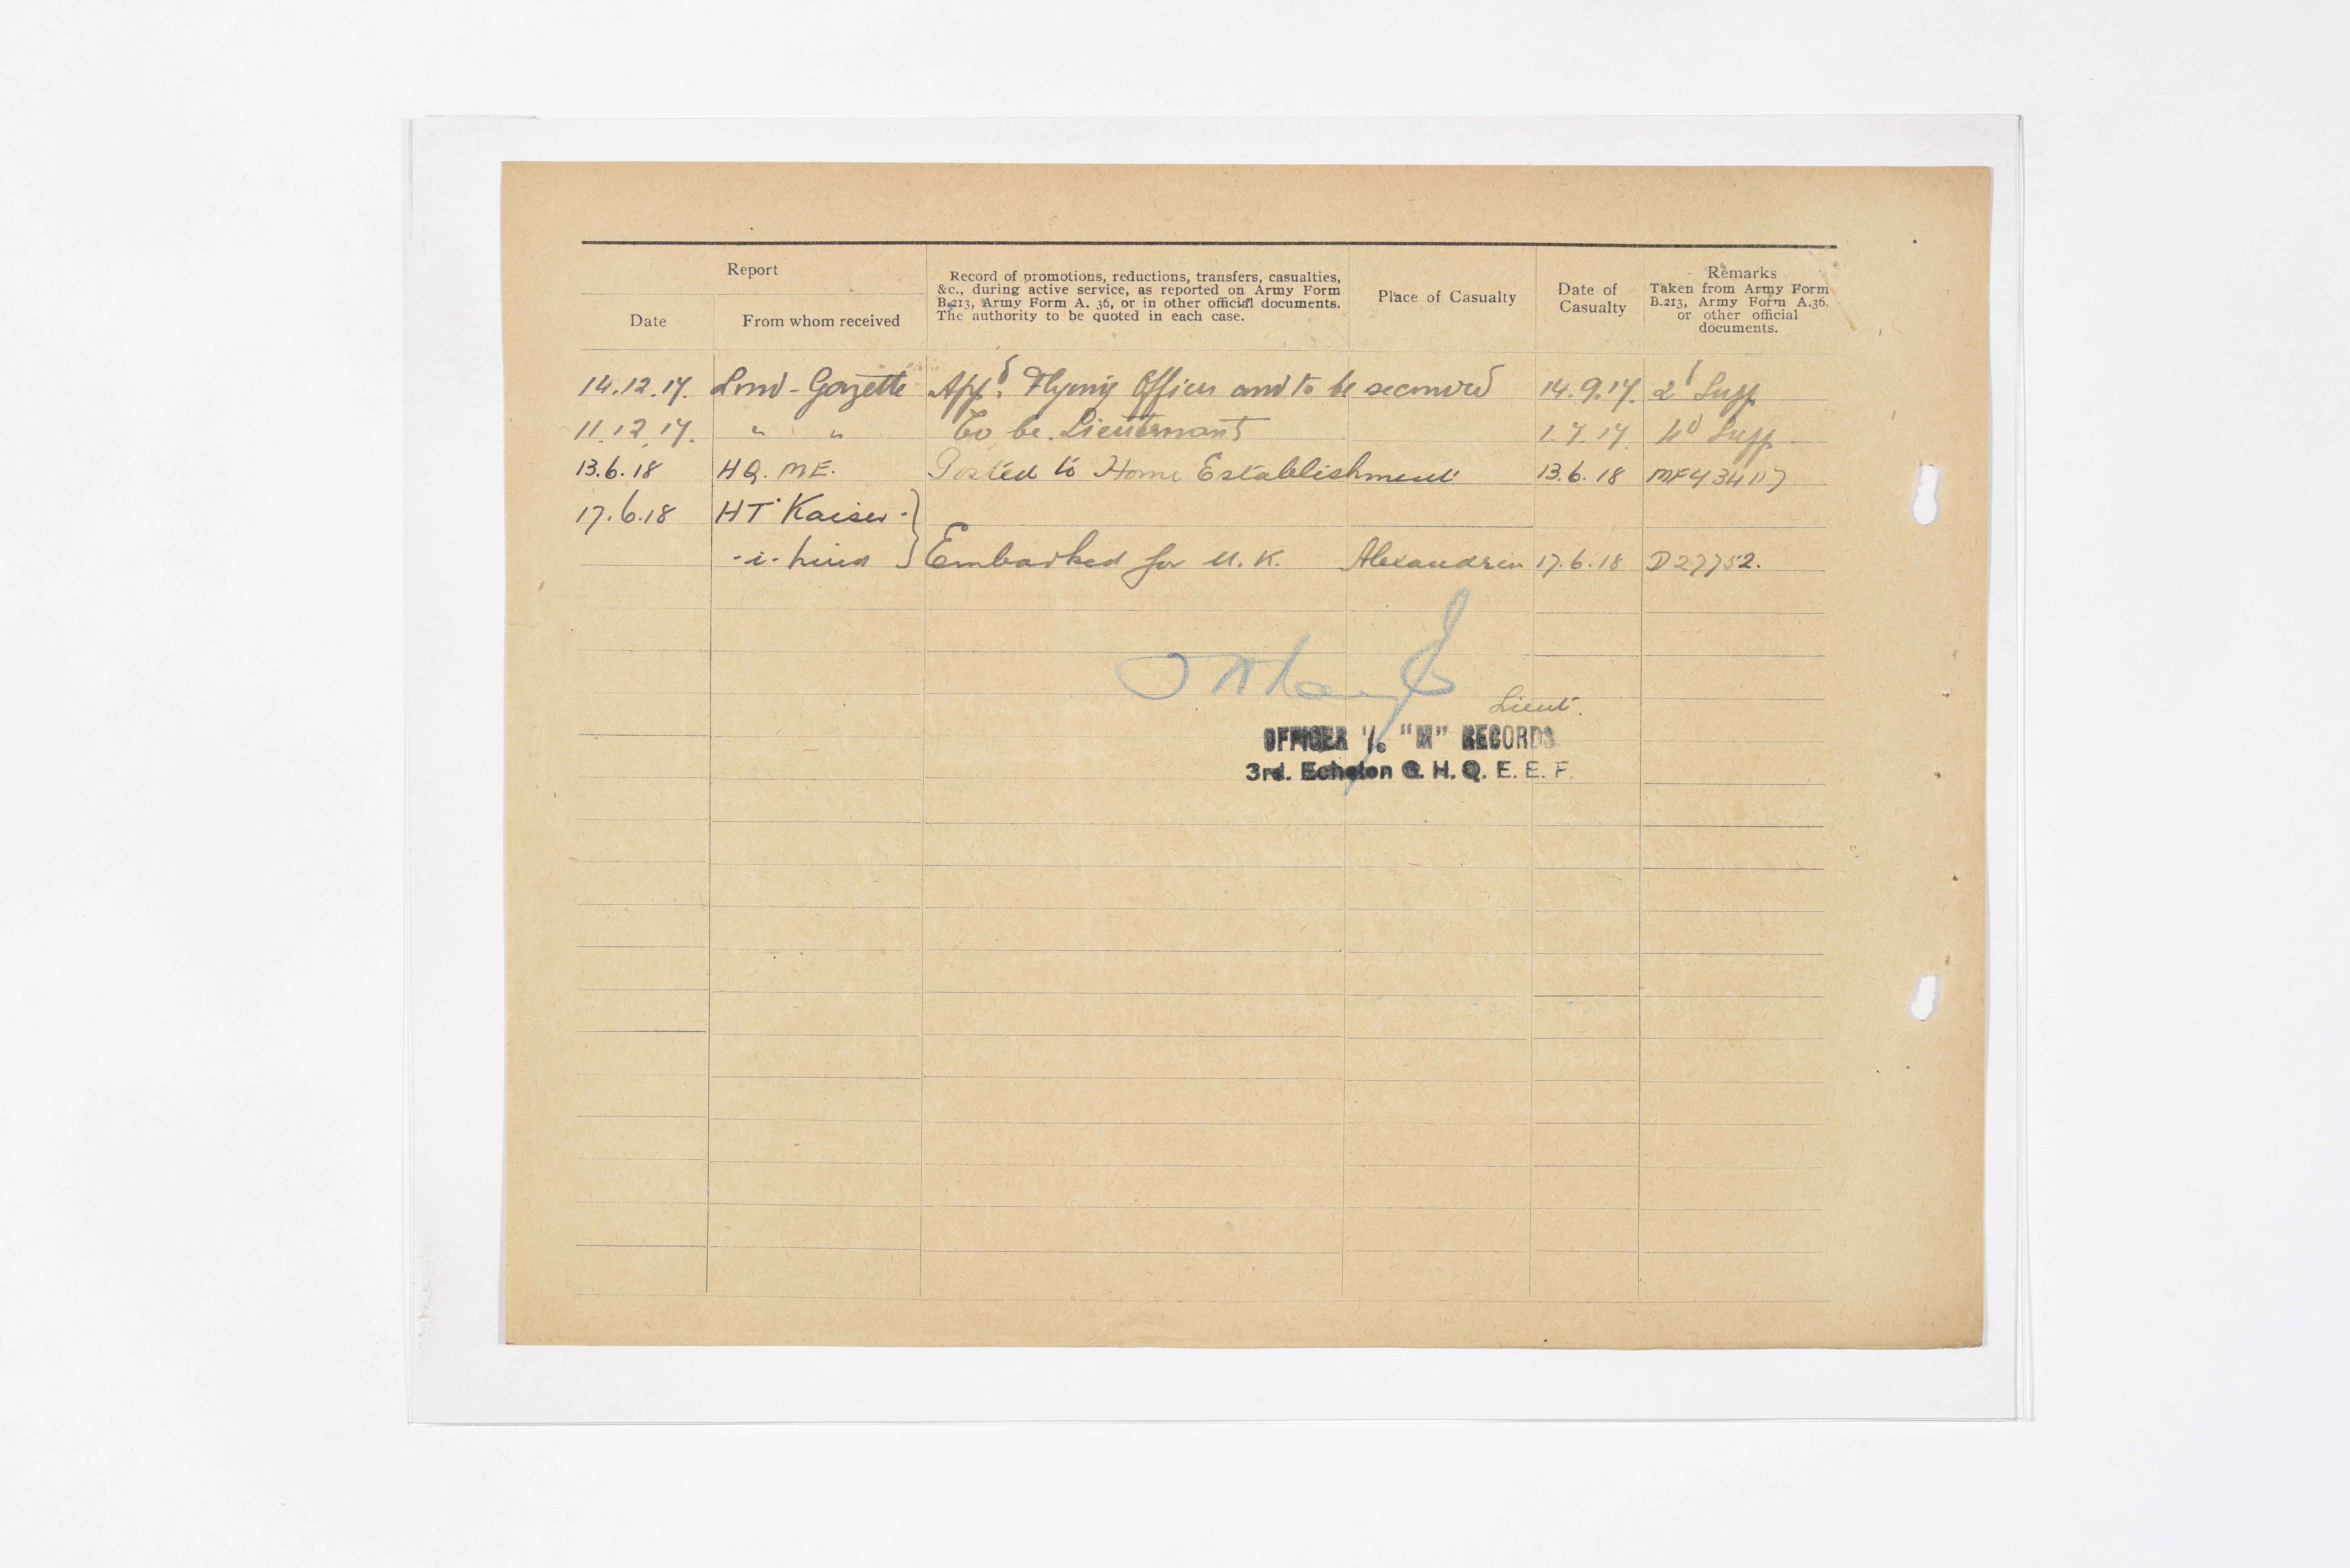 Report
Date
From whom received
Record of promotions, reductions, transfers, casualties,
&c., during active service, as reported on Army Form
B.213, Army Form A. 36, or in other official documents.
The authority to be quoted in each case.
Place of Casualty
Date of
Casualty
Remarks
Taken from Army Form
B.213, Army Form A.36.
or other official
documents.
14.12.17. Lond-Gazette Appd. Flying Officer and to be seconded 14.9.17. 2d Supp
11.12.17. " " To be Lieutenant 1.7.17 4d Supp
13.6.18 HQ. ME. Posted to Home Establishment 13.6.18
17.6.18 HT Kaiser
-i-hind Embarked for U.K. Alexandria 17.6.18 D27752.
Lieut.
OFFICER I/c "M" RECORDS
3rd. Echelon G. H. Q. E. E. F.